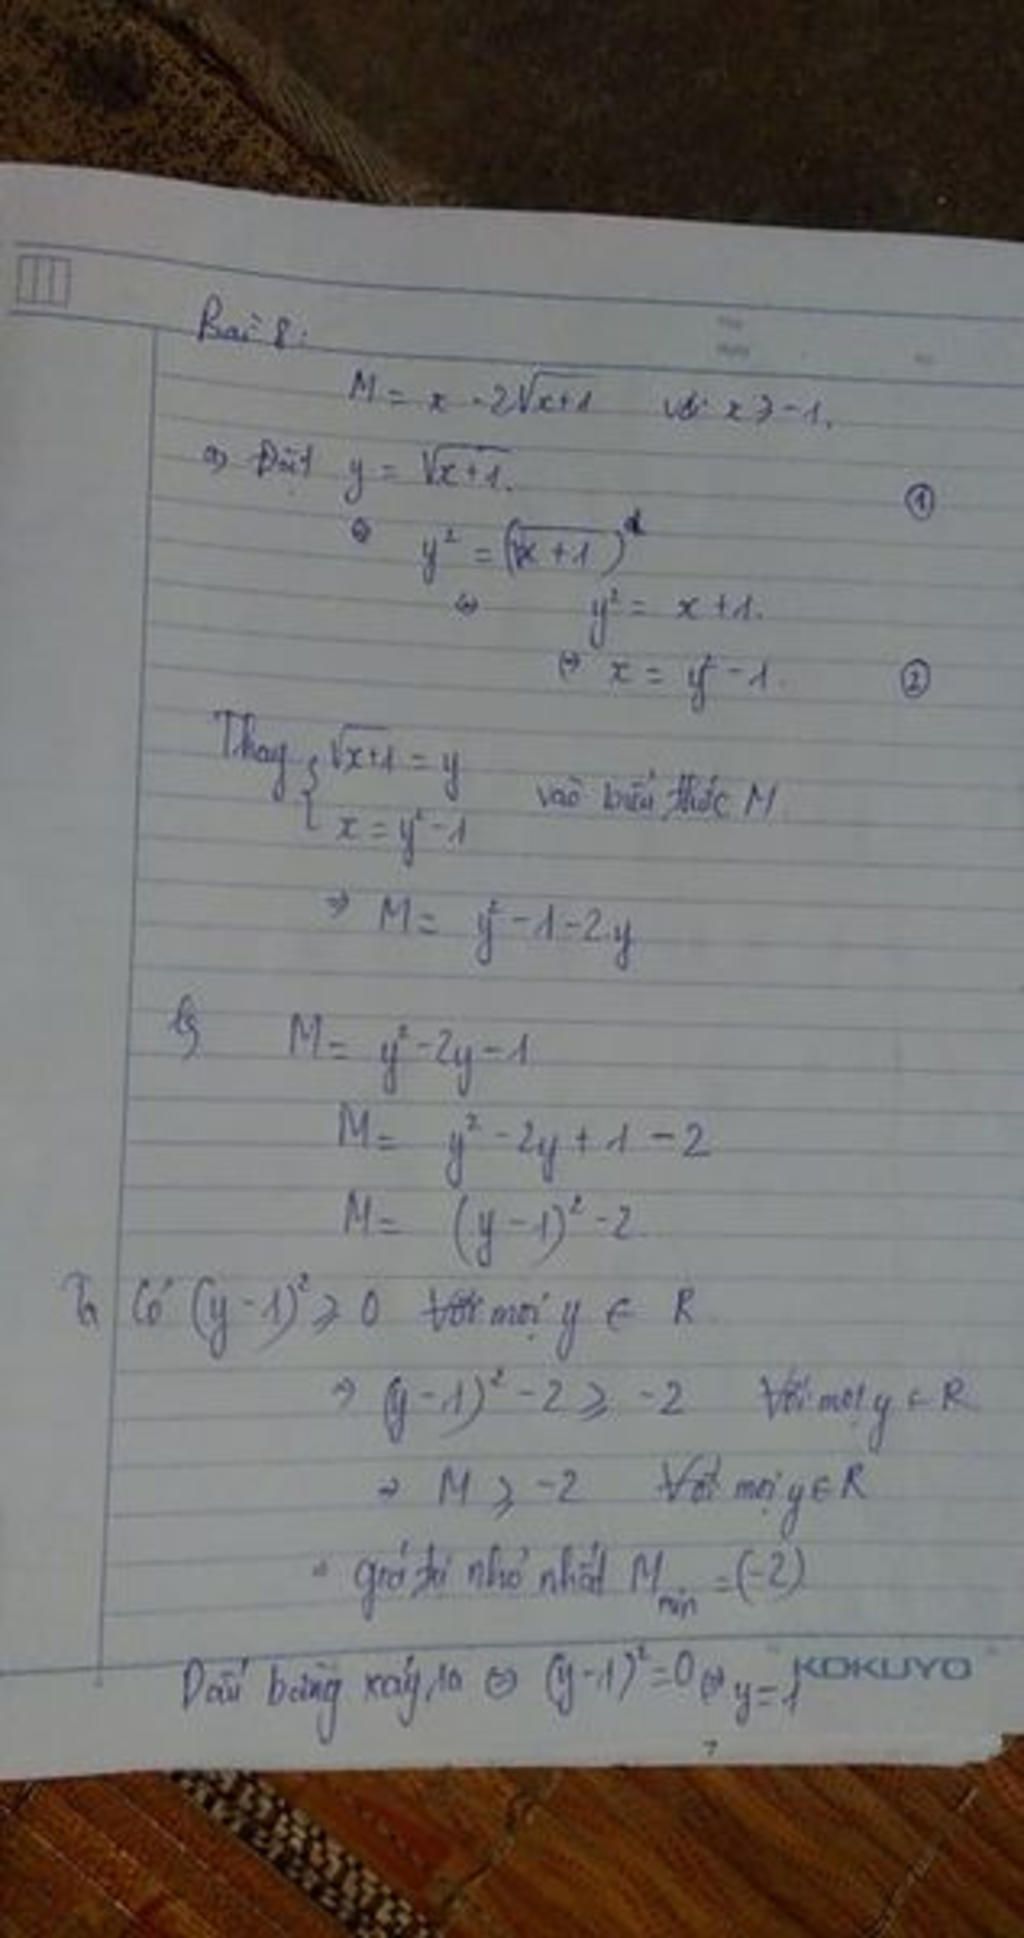 Bài 8:
M = x - 2√(x+1) với x ≥ -1.
a) Đặt y = √(x+1). ①
⇔ y² = (√(x+1))²
⇔ y² = x + 1.
⇔ x = y² - 1. ②
Thay { √(x+1) = y
x = y² - 1 vào biểu thức M
⇒ M = y² - 1 - 2y
b) M = y² - 2y - 1
M = y² - 2y + 1 - 2
M = (y - 1)² - 2
Ta Có (y - 1)² ≥ 0 Với mọi y ∈ R
⇒ (y - 1)² - 2 ≥ -2 Với mọi y ∈ R
⇒ M ≥ -2 Với mọi y ∈ R
giá trị nhỏ nhất M min = (-2)
Dấu bằng xảy ra ⇔ (y - 1)² = 0 ⇔ y = 1
KOKUYO